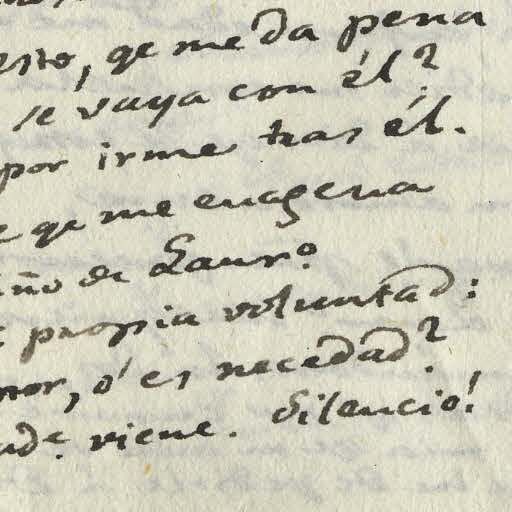 esto, qe me da pena
se vaya con él?
por irme tras él.
qe me enagena
iño de Lauro.
propia voluntad:
mor, ó es necedad?
viene. Silencio!